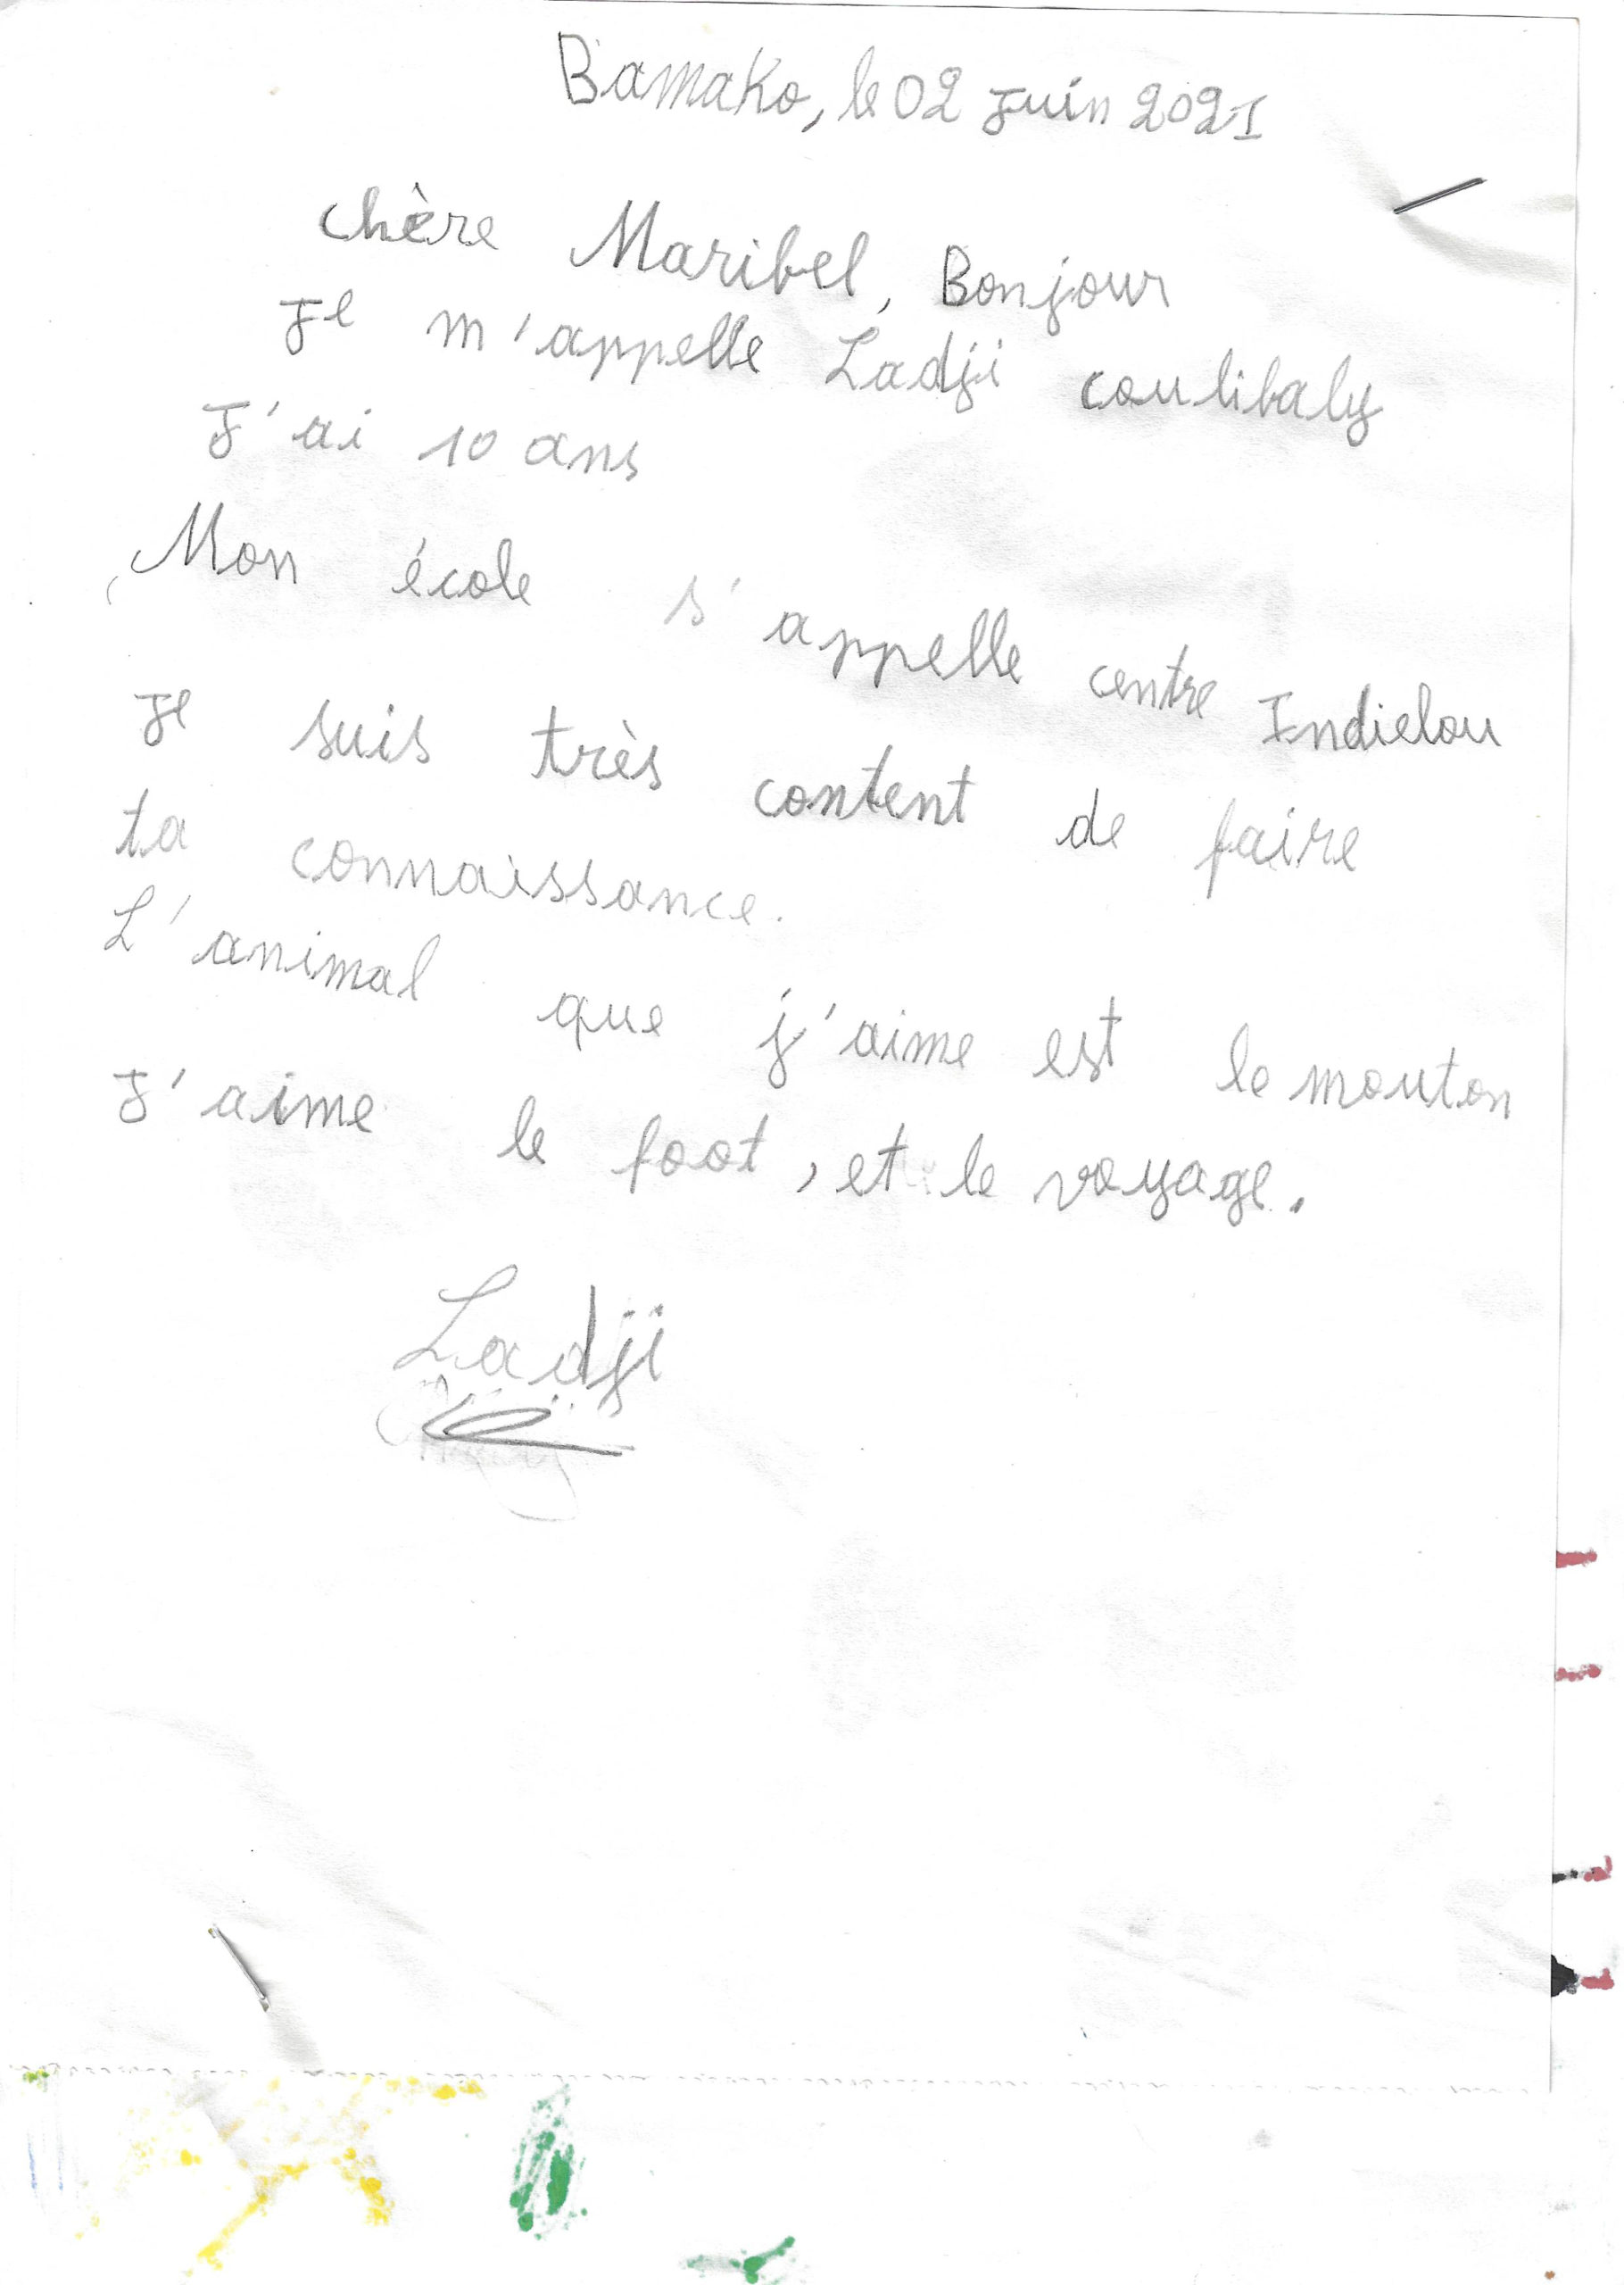 Bamako, le 02 Juin 2021
chère Maribel, Bonjour
Je m'appelle Ladji coulibaly
J'ai 10 ans
Mon école s'appelle centre Indielou
Je suis très content de faire
ta connaissance.
L'animal que j'aime est le mouton
J'aime le foot, et le voyage.
Ladji